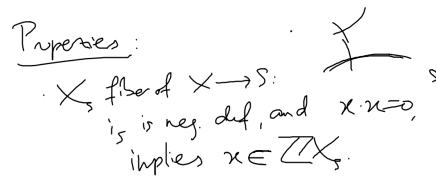 Properties:
· X_s fiber of X → S:
i_s is neg. def, and x·x=0,
implies x ∈ ℤX_s.
s